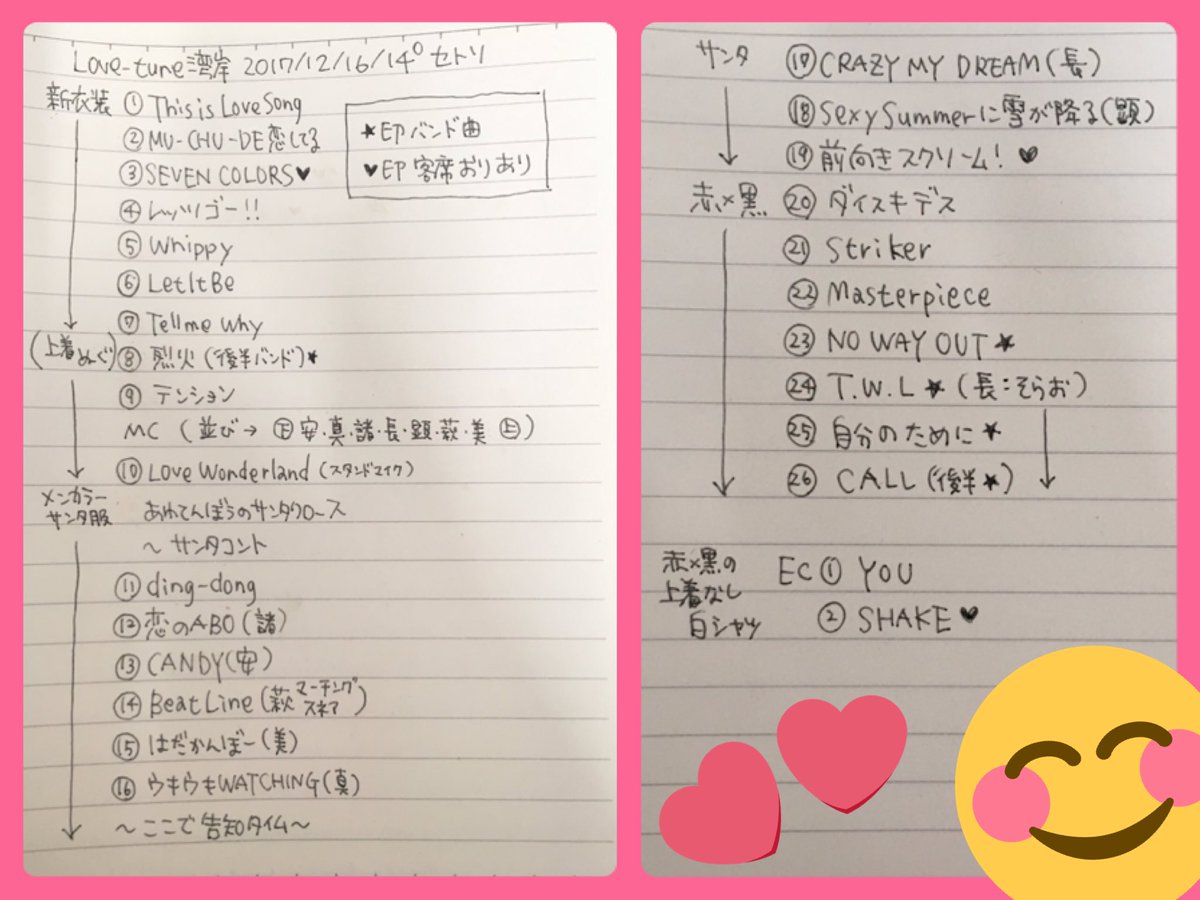 Love-tune湾岸 2017/12/16/14⁰ セトリ
新衣装 ① This is Love Song
② MU-CHU-DE恋してる
③ SEVEN COLORS♥
④ レッツゴー!!
⑤ Whippy
⑥ LetItBe
⑦ Tell me why
(上着ぬぐ) ⑧ 烈火 (後半バンド)★
⑨ テンション
MC (並び→ 下 安・真・諸・長・顕・萩・美 上)
⑩ Love Wonderland (スタンドマイク)
メンカラーサンタ服
あわてんぼうのサンタクロース
～ サンタコント
⑪ ding-dong
⑫ 恋のABO (諸)
⑬ CANDY (安)
⑭ Beat Line (萩 マーチングスネア)
⑮ はだかんぼー (美)
⑯ ウキウキWATCHING (真)
～ここで告知タイム～
★EPバンド曲
♥EP客席おりあり
サンタ ⑰ CRAZY MY DREAM (長)
⑱ Sexy Summerに雪が降る (顕)
⑲ 前向きスクリーム! ♥
赤×黒 ⑳ ダイスキデス
㉑ Striker
㉒ Masterpiece
㉓ NO WAY OUT ★
㉔ T.W.L ★ (長:そらお)
㉕ 自分のために ★
㉖ CALL (後半★)
赤×黒の
上着なし
白シャツ
EC ① YOU
② SHAKE ♥